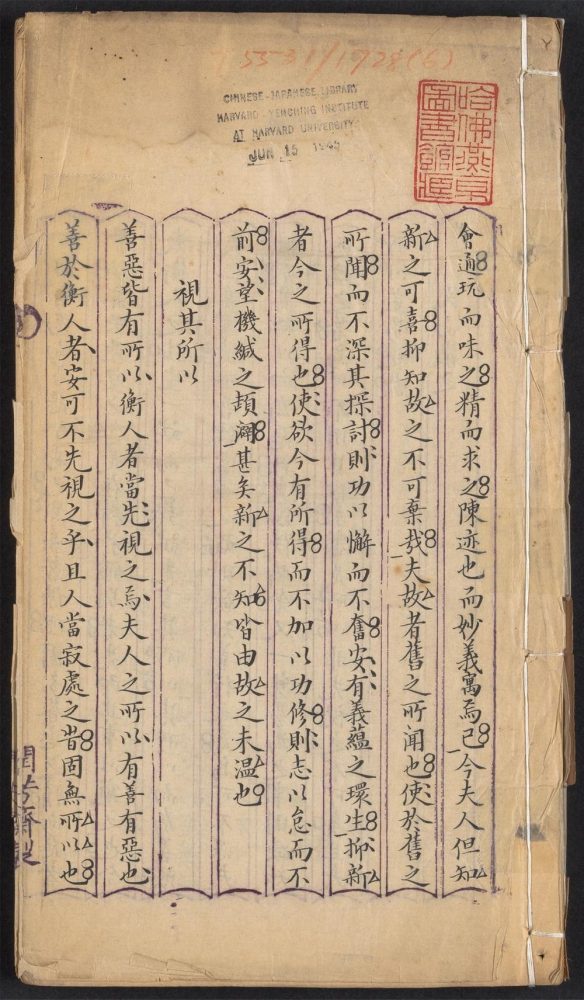 55-31/1728(6)
CHINESE-JAPANESE LIBRARY
HARVARD-YENCHING INSTITUTE
AT HARVARD UNIVERSITY
JUN 15 1945
哈佛燕京
圖書館
會通玩而味之精而求之陳迹也而妙義寓焉已今夫人但知
新之可喜抑知故之不可棄哉夫故者舊之所聞也使於舊之
所聞而不深其探討則功以懈而不奮安有義蘊之環生抑新
者今之所得也使欲今有所得而不加以功修則志以怠而不
前安望機緘之頓濶甚矣新之不知皆由故之未温也
視其所以
善惡皆有所以衡人者當先視之焉夫人之所以有善有惡也
善於衡人者安可不先視之乎且人當寂處之昔固無所以也